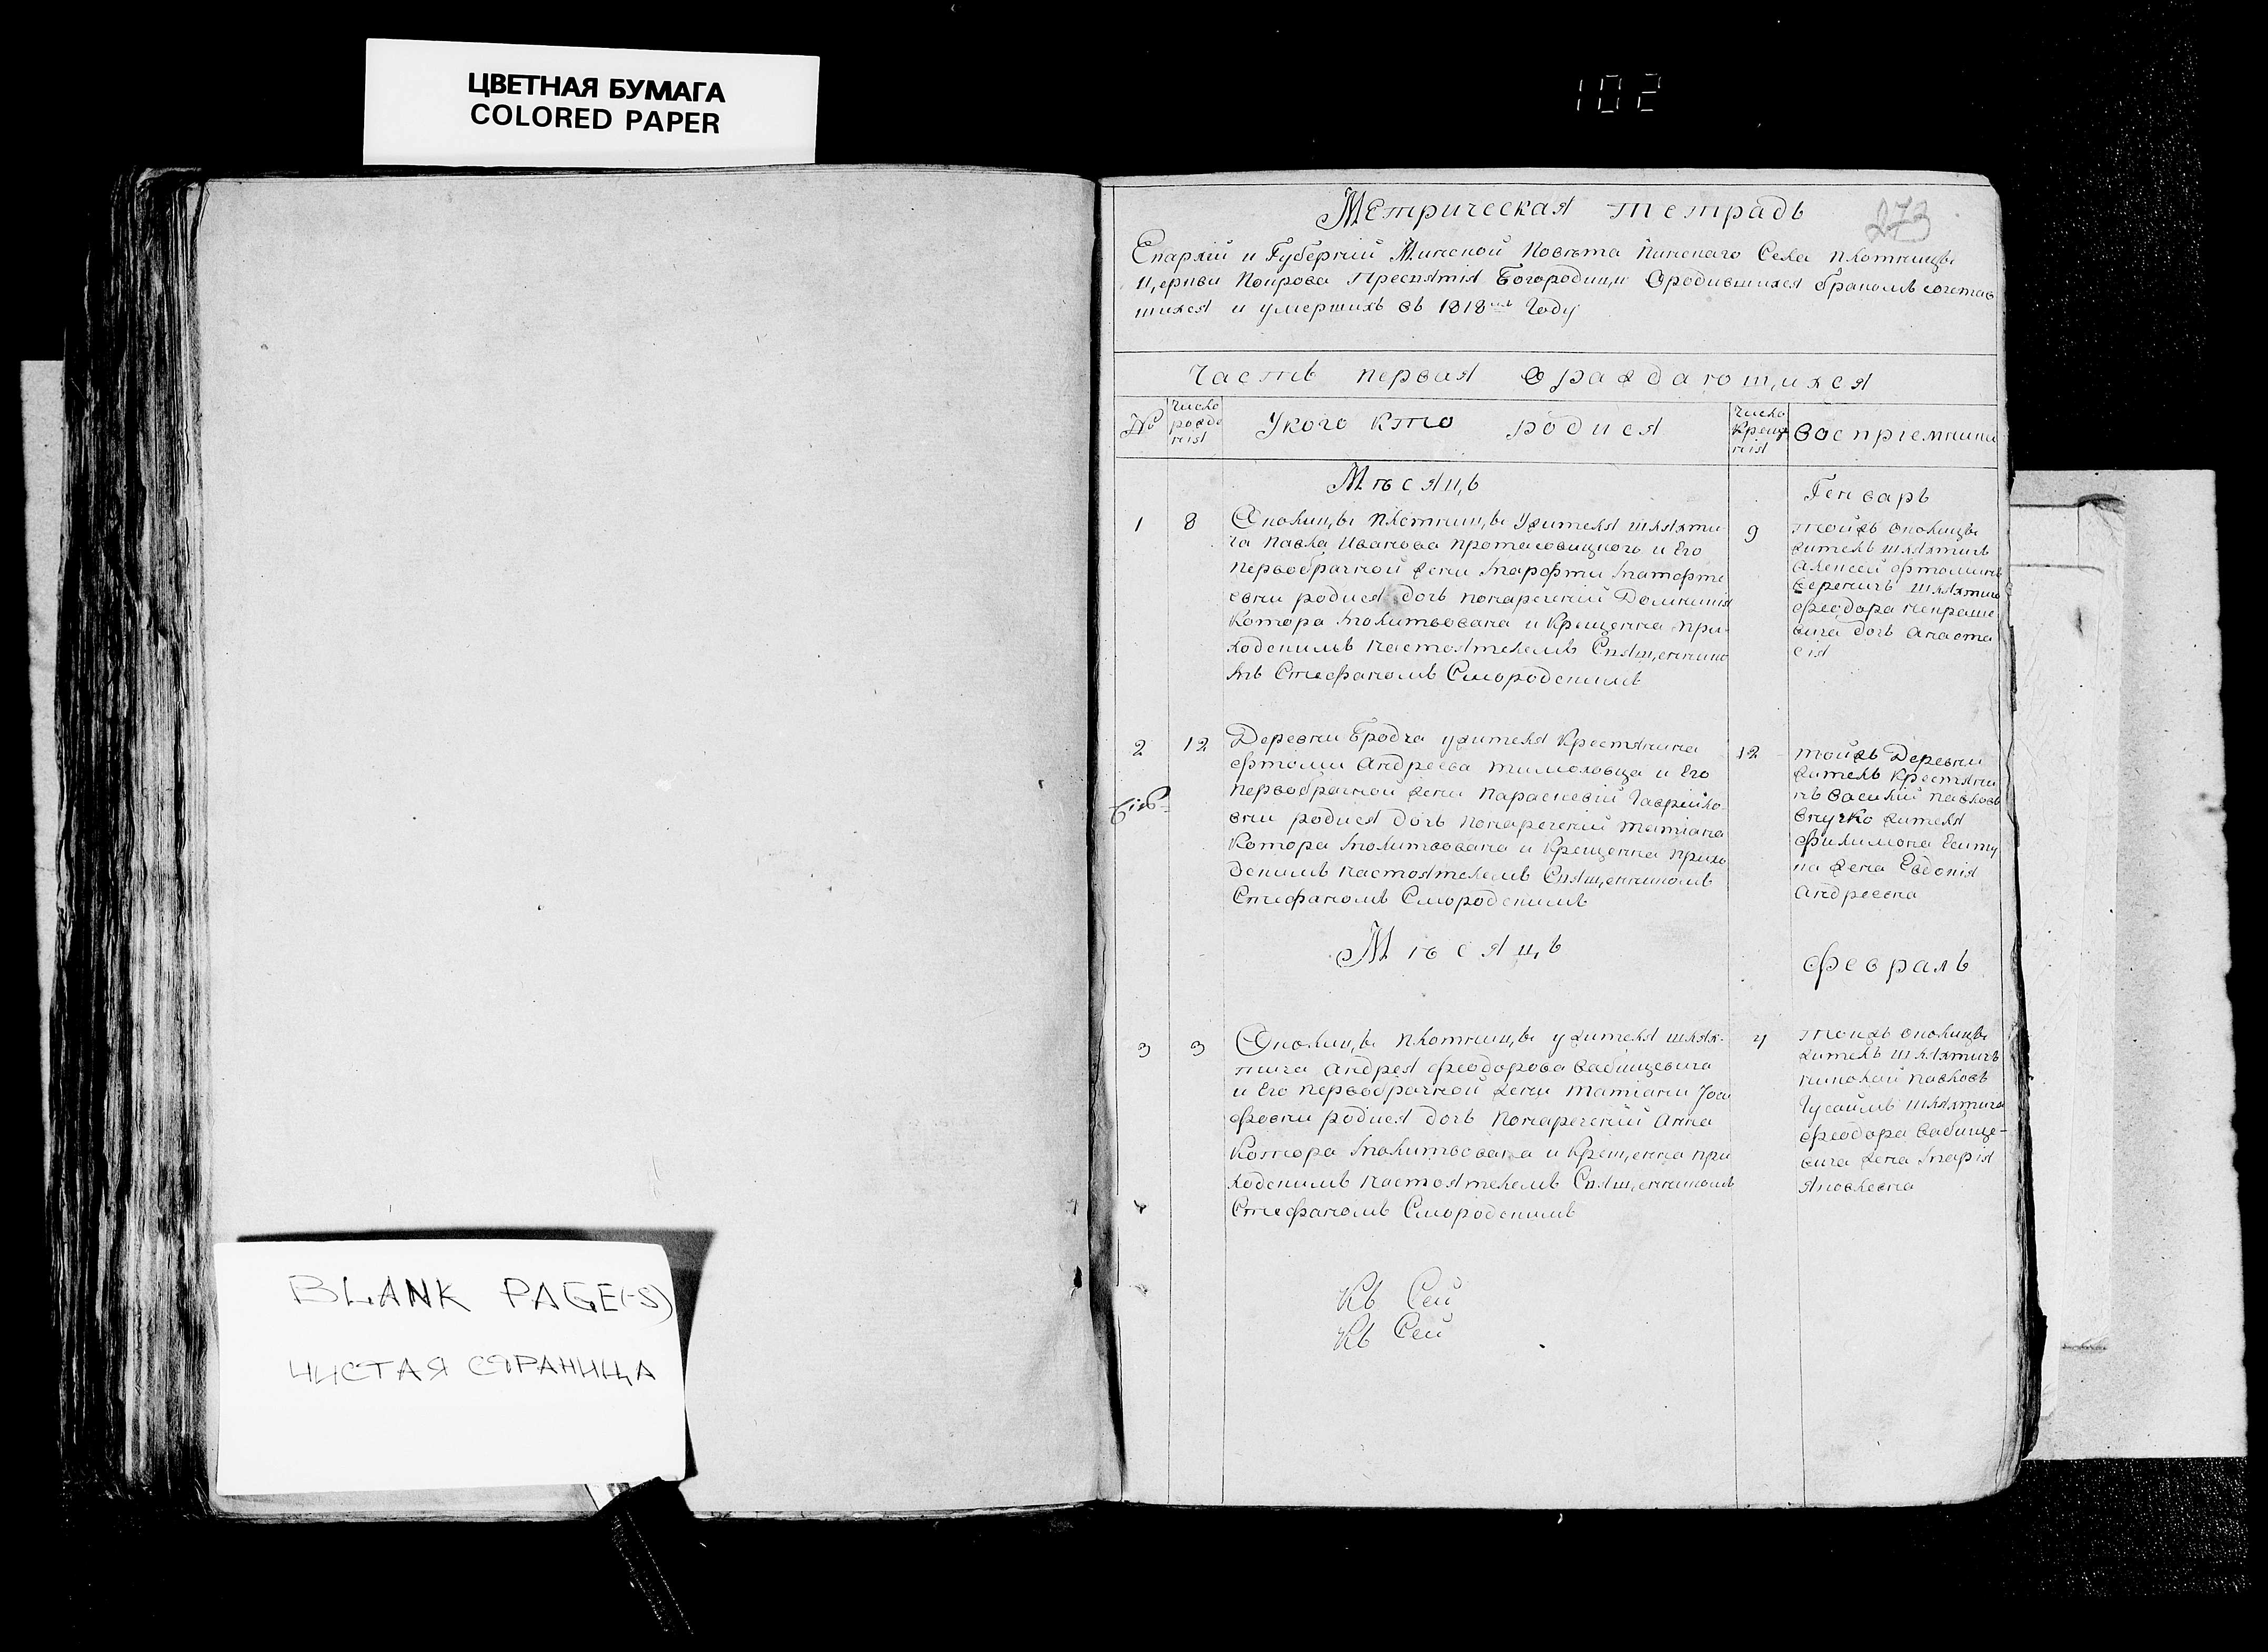 ЦВЕТНАЯ БУМАГА
COLORED PAPER
102
Метрическая тетрадь
273
Епархїи и Губернїи Минской Повѣта Пинскаго Села Плотницы
Церкви Покрова Пресвятїя Богородицы Ородившихся бракомъ сочетав
шихся и умершихъ въ 1818мъ Году
Часть первая Ораждающихся
№
Число рожде нія
Укого кто родися
Число Крещ нія
Воспріемники
Мѣсяцъ
Генварь
1
8
Околицы Плотницы Ужителя шляхти
ча Павла Иванова Протасовицкого и Его
первобрачной жены Марфты
вны родися дочь нонаречений Домникия
Котора Молитвована и Крещенна при
ходскимъ настоятелемъ Свящ,еннико
мъ Стефаномъ Смородскимъ
9
тойжъ околицы
житель шляхтичъ
Алексей
Вереничъ шляхтича
феодора Некраше
вича дочь Анаста
сія
2
12
Деревни Бродча ужителя Крестянина
Андреева Тимоховца и Его
первобрачной жены Параскевїи Гаврийло
вны родися дочь нонаречений Татіана
Котора Молитвована и Крещенна прихо
дскимъ настоятелемъ Свящ,енникомъ
Стефаномъ Смородскимъ
12
тойжъ Деревни
житель Крестяни
нъ Василїй Павловъ
Внучко жителя
филимона
на жена Евдокія
Андреевна
Мѣсяцъ
февраль
3
3
Околицы Плотницы ужителя шлях
тича Андрея феодорова Вабищевича
и Его первобрачной жены Татіаны Іоси
фовны родися дочь нонаречений Анна
Котора Молитвована и Крещ,енна при
ходскимъ настоятелемъ Свящ,енникомъ
Стефаномъ Смородскимъ
4
тойжъ околицы
житель шляхтичъ
Павловъ
шляхтича
феодора Вабище-
вича жена Марія
Яковлевна
Къ Сей
Къ Сей
BLANK PAGE(-S)
ЧИСТАЯ СТРАНИЦА